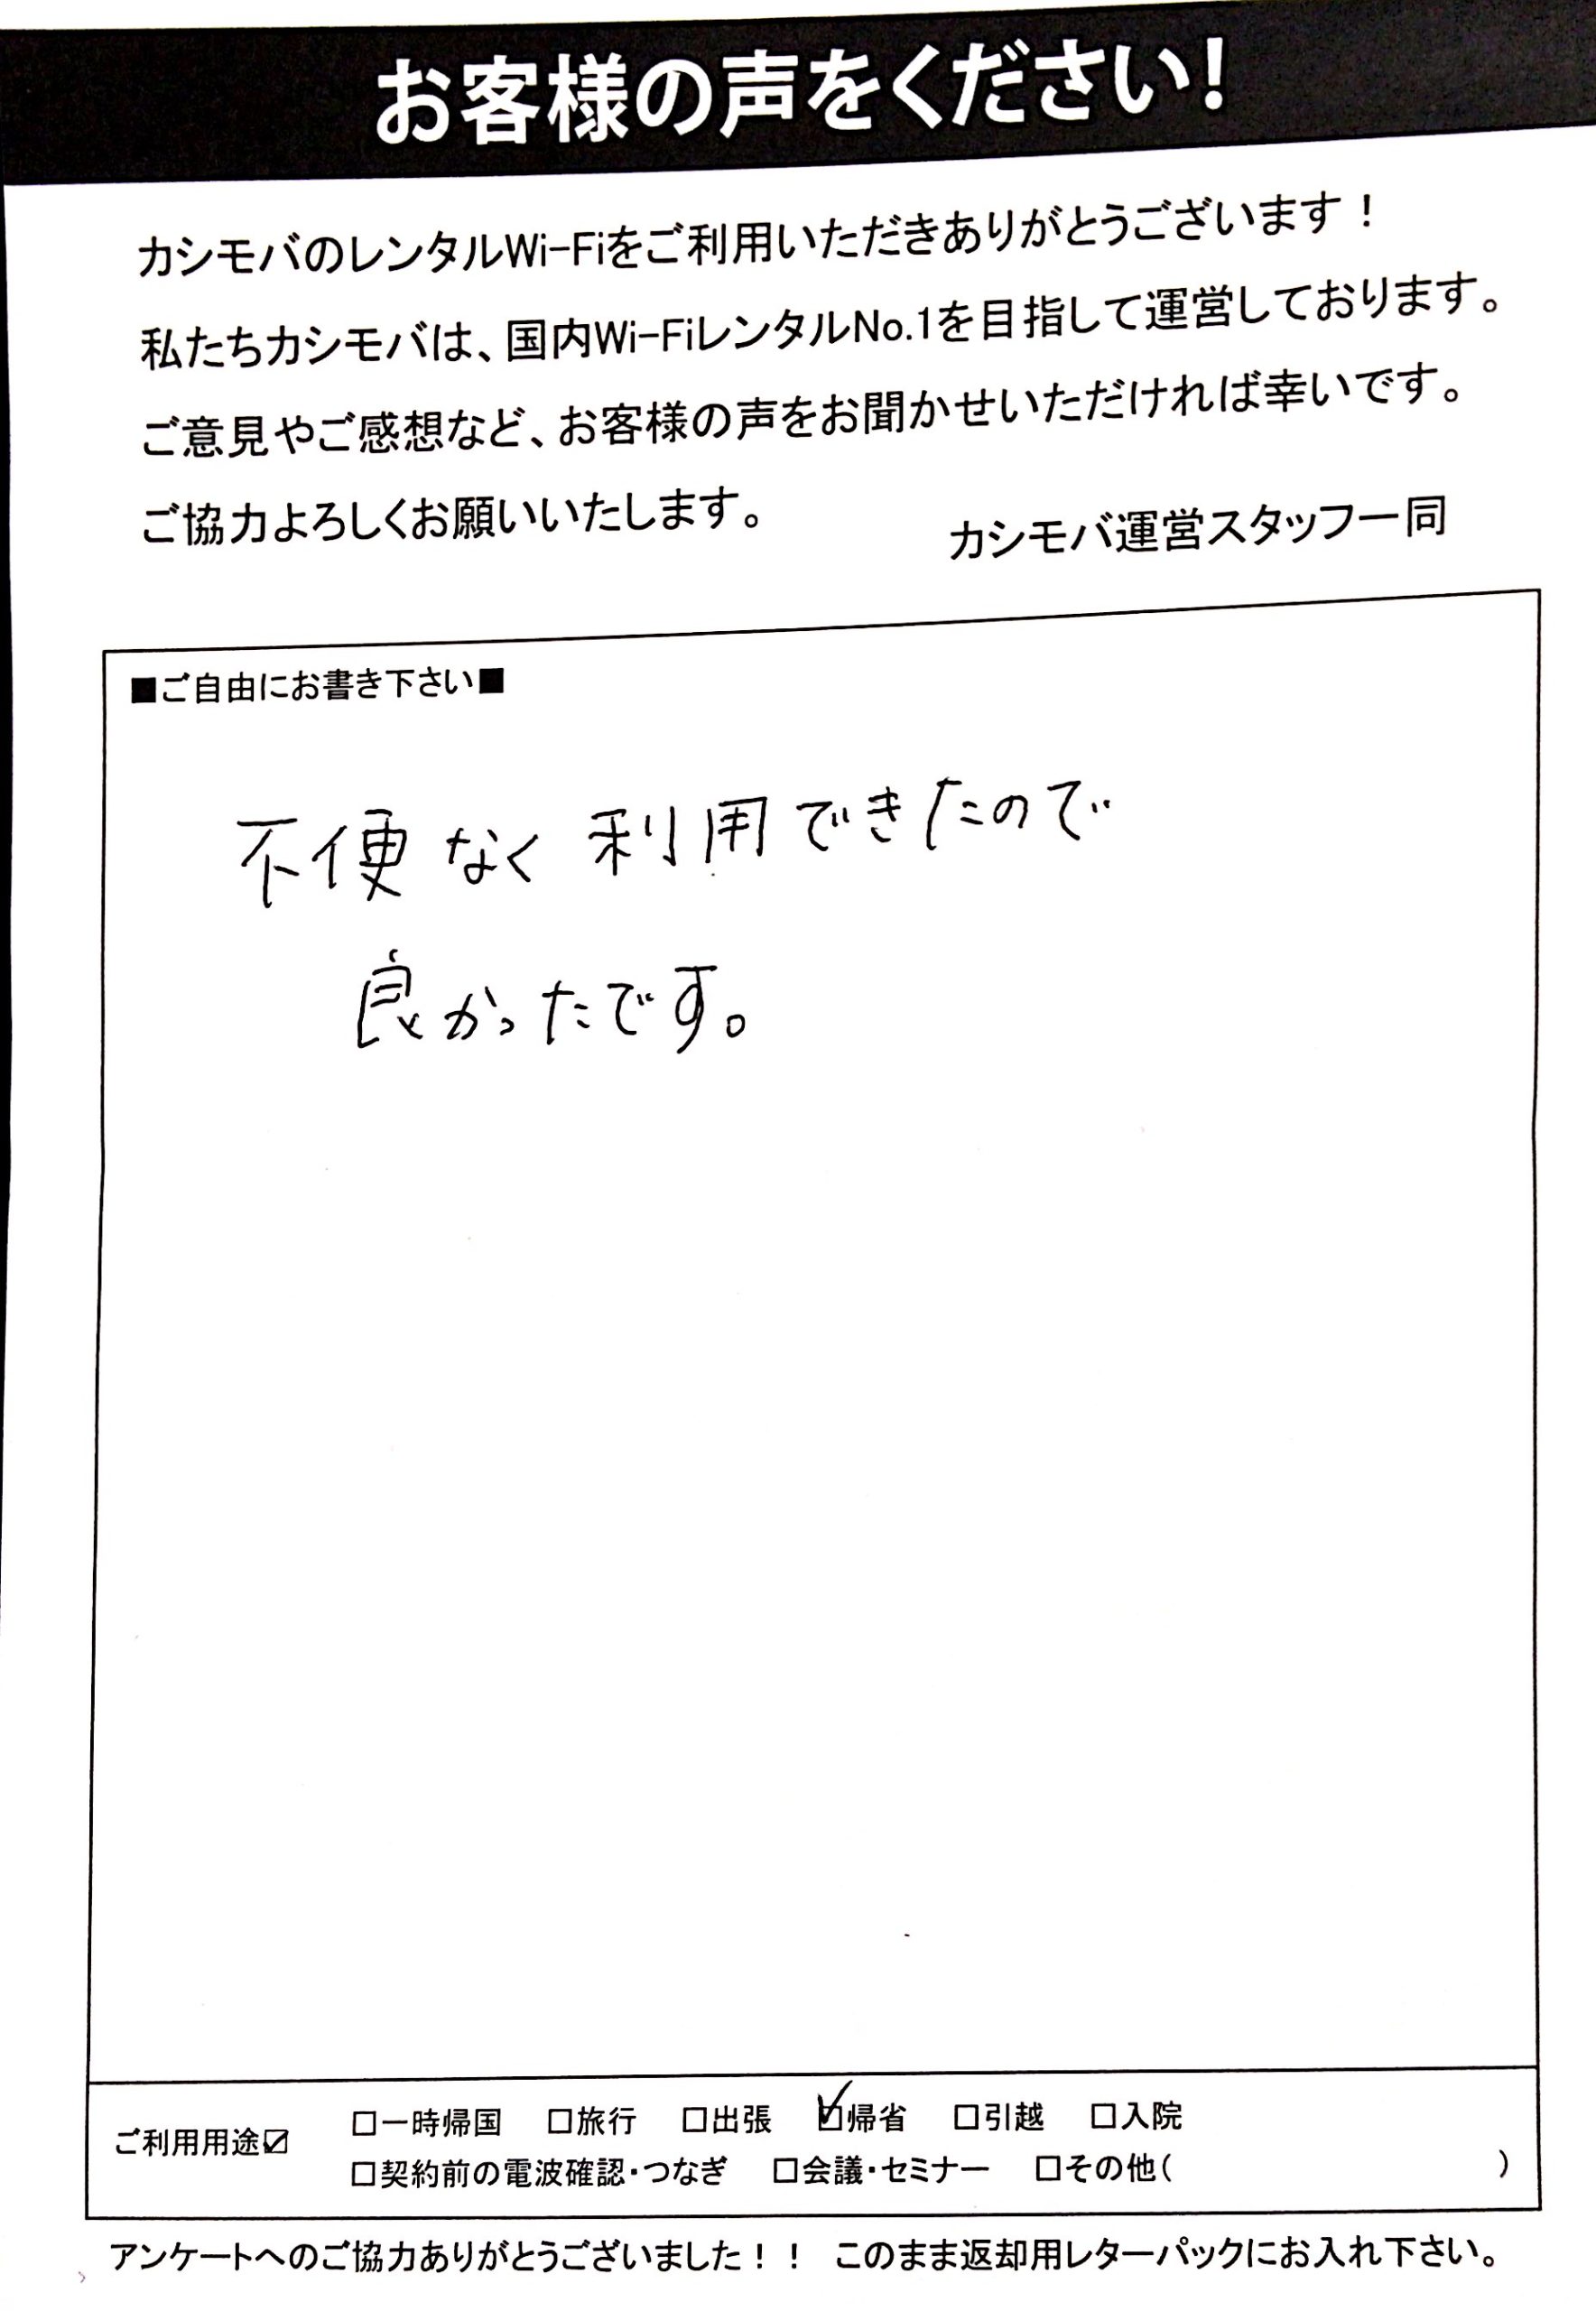 お客様の声をください!
カシモバのレンタルWi-Fiをご利用いただきありがとうございます！
私たちカシモバは、国内Wi-FiレンタルNo.1を目指して運営しております。
ご意見やご感想など、お客様の声をお聞かせいただければ幸いです。
ご協力よろしくお願いいたします。
カシモバ運営スタッフ一同
■ご自由にお書き下さい■
不便なく利用できたので
良かったです。
ご利用用途☑
□一時帰国 □旅行 □出張 ☑帰省 □引越 □入院
□契約前の電波確認・つなぎ □会議・セミナー □その他( )
アンケートへのご協力ありがとうございました！！ このまま返却用レターパックにお入れ下さい。